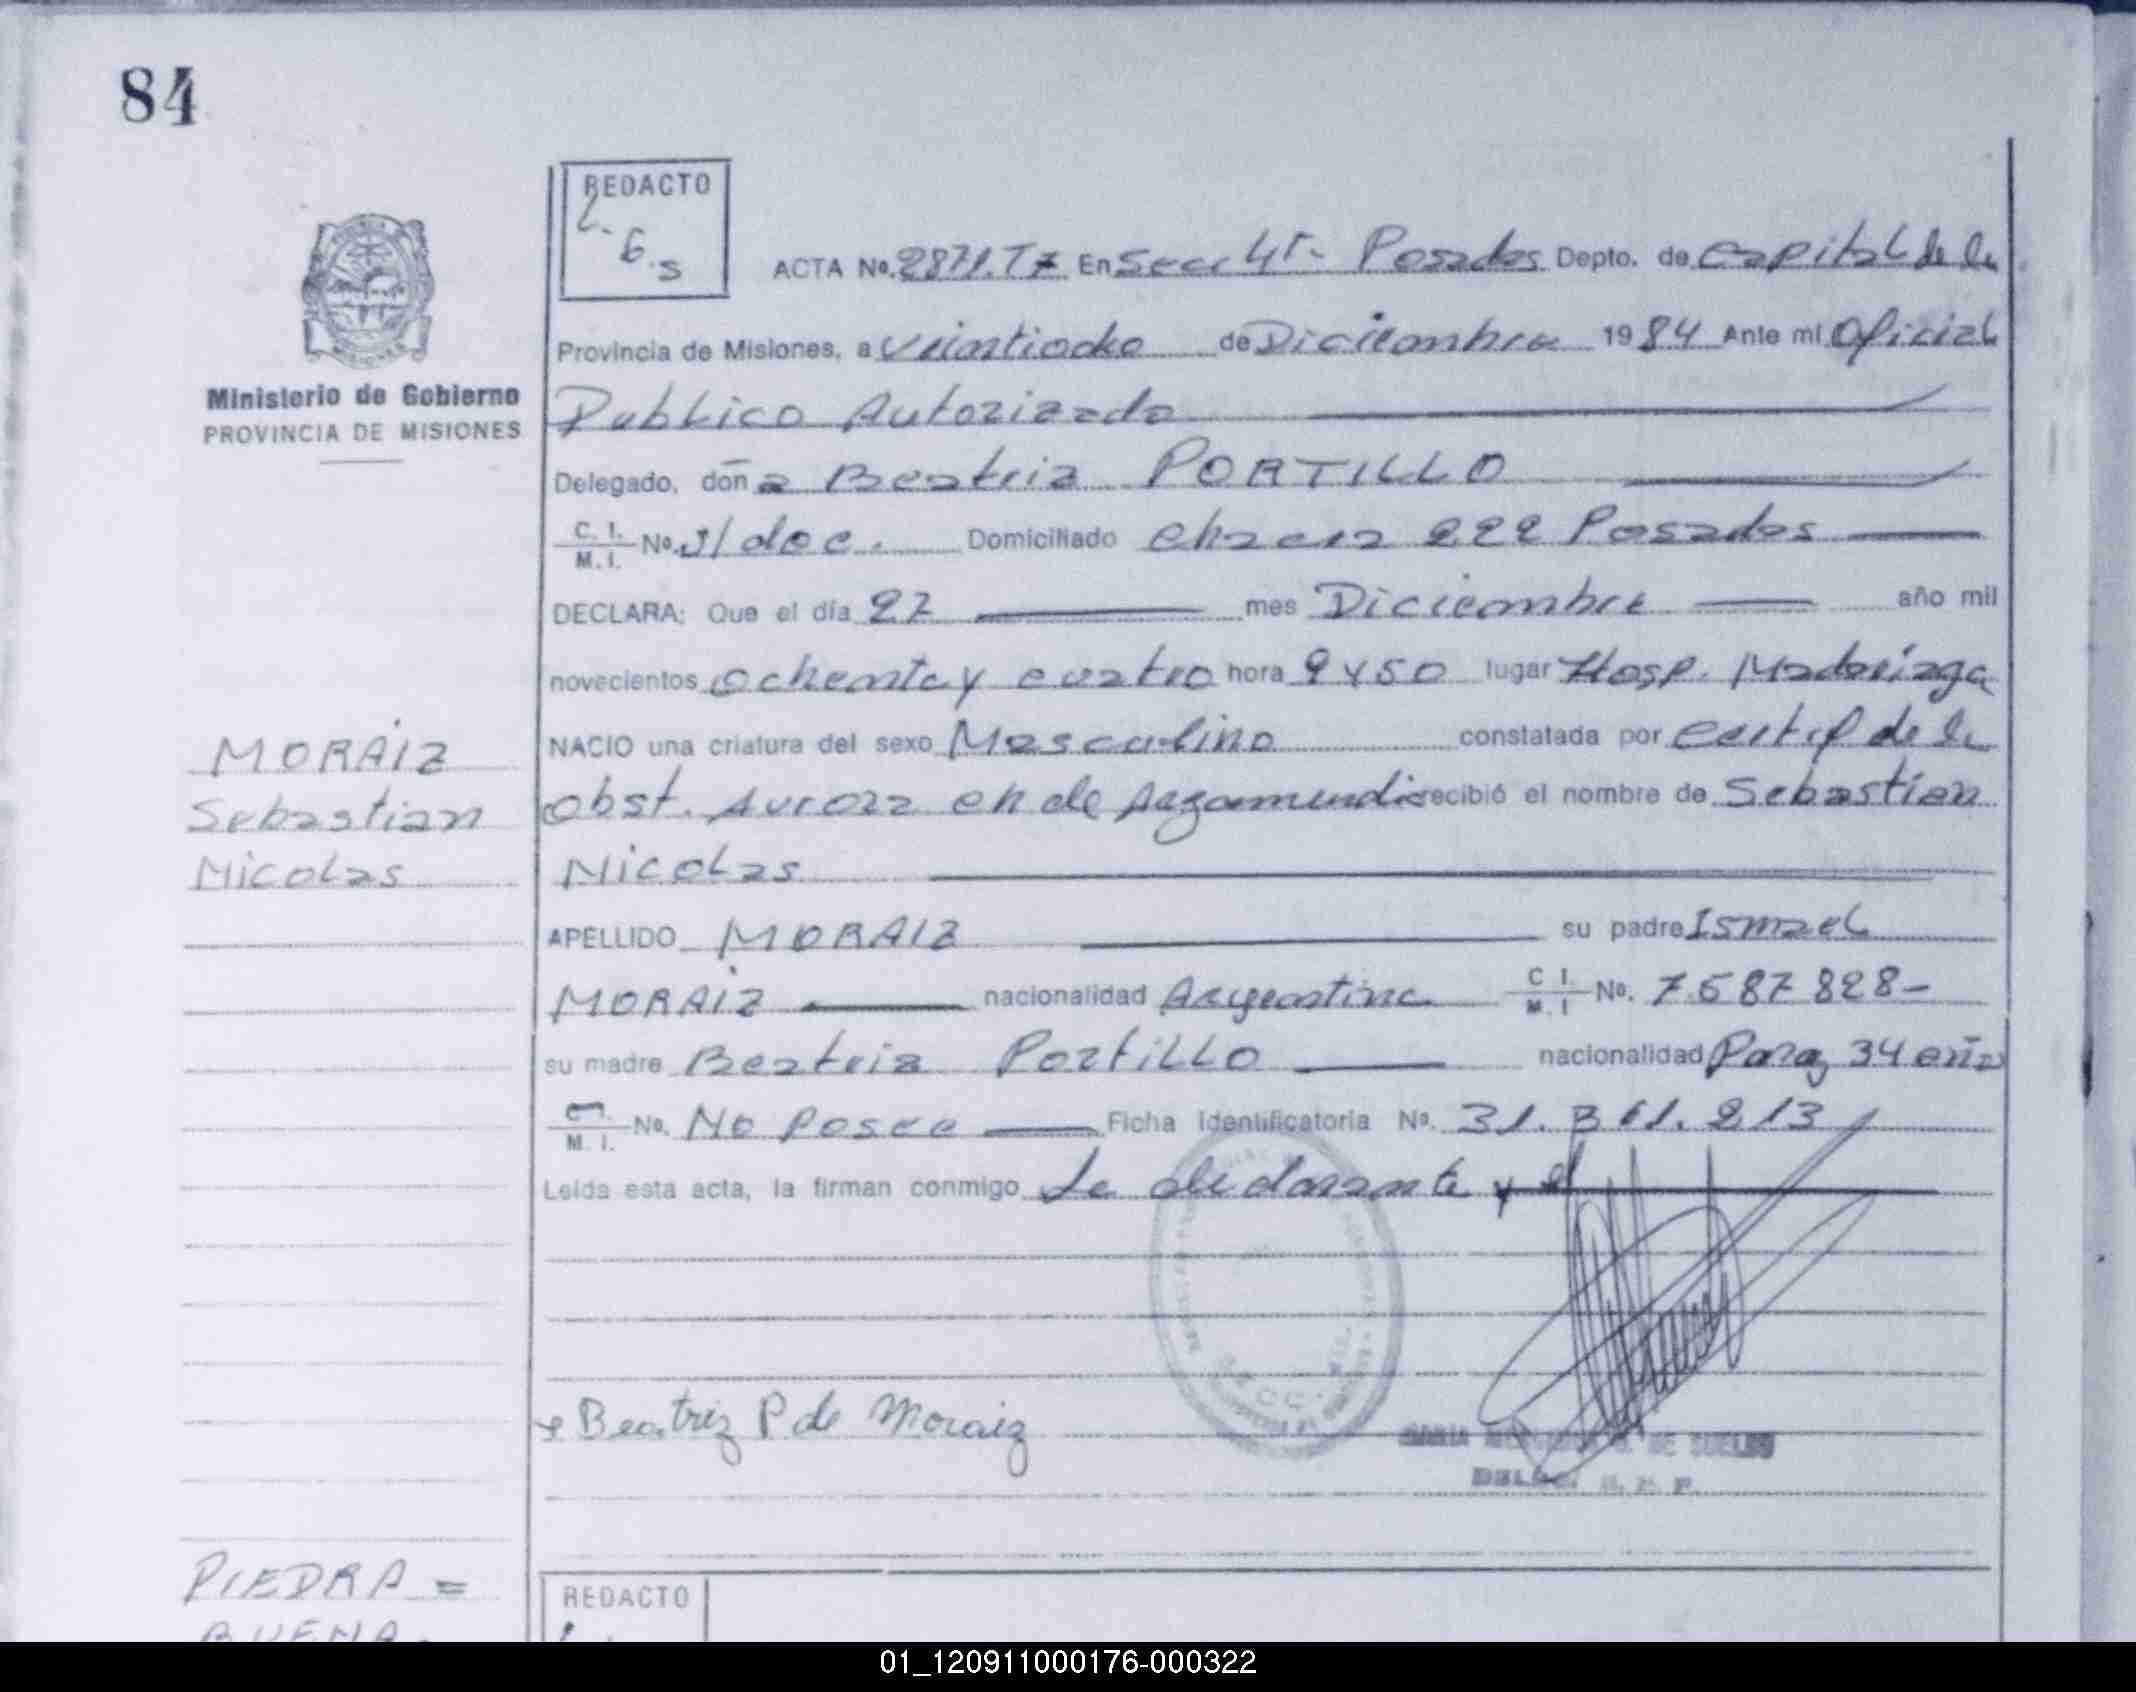 84
REDACTO
L.
G.s
ACTA No. 2871.T7 En Secc 4ta Posadas Depto. de Capital de la
Provincia de Misiones, a veintiocho de Diciembre 1984 Ante mi Oficial
Ministerio de Gobierno
PROVINCIA DE MISIONES
Publico Autorizado
Delegado, doña Beatriz PORTILLO
C. I. M. I. No. s/doc. Domiciliado Chacra 222 Posadas
DECLARA: Que el día 27 mes Diciembre año mil
novecientos ochenta y cuatro hora 9 y 50 lugar Hosp. Madariaga
MORAIZ
Sebastian
Nicolas
NACIO una criatura del sexo Masculino constatada por certif de la
obst. Aurora ch de recibió el nombre de Sebastian
Nicolas
APELLIDO MORAIZ su padre Ismael
MORAIZ nacionalidad Argentina C I. M. I No. 7.587 828-
su madre Beatriz Portillo nacionalidad Parag 34 años
M. I. No. No Posee Ficha identificatoria No. 31.361.213
Leida esta acta, la firman conmigo La declarante y
Beatriz P de Moraiz
DE
PIEDRA =
BUENA
REDACTO
01_120911000176-000322